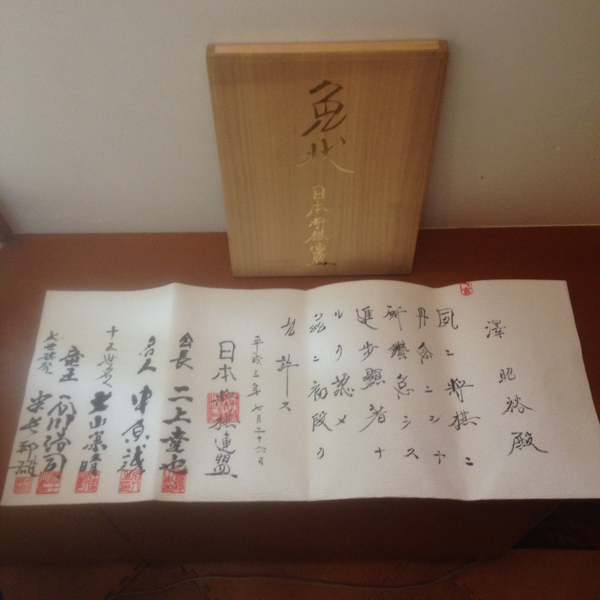 免状
日本将棋連盟
澤 昭裕 殿
夙ニ将棋ニ
丹念ニシテ
研鑽怠ラス
進歩顕著ナ
ルヲ認メ
茲ニ初段ヲ
允許ス
平成三年七月二十六日
日本将棋連盟
会長 二上達也
名人 中原誠
十五世名人 大山康晴
竜王 谷川浩司
永世棋聖 米長邦雄